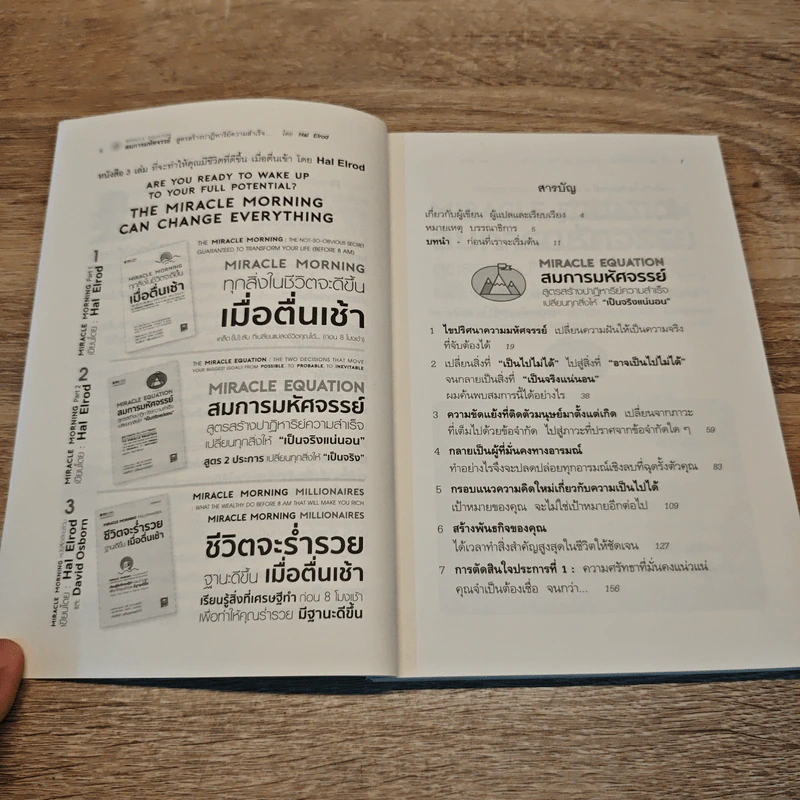 สมการมหัศจรรย์ สูตรสร้างปาฏิหาริย์ความสำเร็จ... โดย Hal Elrod
หนังสือ 3 เล่ม ที่จะทำให้คุณมีชีวิตที่ดีขึ้น เมื่อตื่นเช้า โดย Hal Elrod
ARE YOU READY TO WAKE UP
TO YOUR FULL POTENTIAL?
THE MIRACLE MORNING
CAN CHANGE EVERYTHING
1
MIRACLE MORNING Part 1
เขียนโดย : Hal Elrod
MIRACLE MORNING
ทุกสิ่งในชีวิตจะดีขึ้น
เมื่อตื่นเช้า
THE MIRACLE MORNING : THE NOT-SO-OBVIOUS SECRET
GUARANTEED TO TRANSFORM YOUR LIFE (BEFORE 8 AM)
MIRACLE MORNING
ทุกสิ่งในชีวิตจะดีขึ้น
เมื่อตื่นเช้า
เคล็ด (ไม่) ลับ ที่เปลี่ยนแปลงชีวิตคุณได้... (ก่อน 8 โมงเช้า)
2
MIRACLE MORNING Part 2
เขียนโดย : Hal Elrod
MIRACLE EQUATION
สมการมหัศจรรย์
THE MIRACLE EQUATION : THE TWO DECISIONS THAT MOVE
YOUR BIGGEST GOALS FROM POSSIBLE, TO PROBABLE, TO INEVITABLE
MIRACLE EQUATION
สมการมหัศจรรย์
สูตรสร้างปาฏิหาริย์ความสำเร็จ
เปลี่ยนทุกสิ่งให้ "เป็นจริงแน่นอน"
สูตร 2 ประการ เปลี่ยนทุกสิ่งให้ "เป็นจริง"
3
เขียนโดย : Hal Elrod
และ David Osborn
MIRACLE MORNING MILLIONAIRES
ชีวิตจะร่ำรวย
ฐานะดีขึ้น เมื่อตื่นเช้า
MIRACLE MORNING MILLIONAIRES
WHAT THE WEALTHY DO BEFORE 8 AM THAT WILL MAKE YOU RICH
MIRACLE MORNING MILLIONAIRES
ชีวิตจะร่ำรวย
ฐานะดีขึ้น เมื่อตื่นเช้า
เรียนรู้สิ่งที่เศรษฐีทำ ก่อน 8 โมงเช้า
เพื่อทำให้คุณร่ำรวย มีฐานะดีขึ้น
7
สารบัญ
เกี่ยวกับผู้เขียน ผู้แปลและเรียบเรียง 4
หมายเหตุ บรรณาธิการ 5
บทนำ - ก่อนที่เราจะเริ่มต้น 11
MIRACLE EQUATION
สมการมหัศจรรย์
สูตรสร้างปาฏิหาริย์ความสำเร็จ
เปลี่ยนทุกสิ่งให้ "เป็นจริงแน่นอน"
1 ไขปริศนาความมหัศจรรย์ เปลี่ยนความฝันให้เป็นความจริง
ที่จับต้องได้ 19
2 เปลี่ยนสิ่งที่ "เป็นไปไม่ได้" ไปสู่สิ่งที่ "อาจเป็นไปไม่ได้"
จนกลายเป็นสิ่งที่ "เป็นจริงแน่นอน"
ผมค้นพบสมการนี้ได้อย่างไร 38
3 ความขัดแย้งที่ติดตัวมนุษย์มาตั้งแต่เกิด เปลี่ยนจากภาวะ
ที่เต็มไปด้วยข้อจำกัด ไปสู่ภาวะที่ปราศจากข้อจำกัดใด ๆ 59
4 กลายเป็นผู้ที่มั่นคงทางอารมณ์
ทำอย่างไรจึงจะปลดปล่อยทุกอารมณ์เชิงลบที่ฉุดรั้งตัวคุณ 83
5 กรอบแนวความคิดใหม่เกี่ยวกับความเป็นไปได้
เป้าหมายของคุณ จะไม่ใช่เป้าหมายอีกต่อไป 109
6 สร้างพันธกิจของคุณ
ได้เวลาทำสิ่งสำคัญสูงสุดในชีวิตให้ชัดเจน 127
7 การตัดสินใจประการที่ 1 : ความศรัทธาที่มั่นคงแน่วแน่
คุณจำเป็นต้องเชื่อ จนกว่า... 156